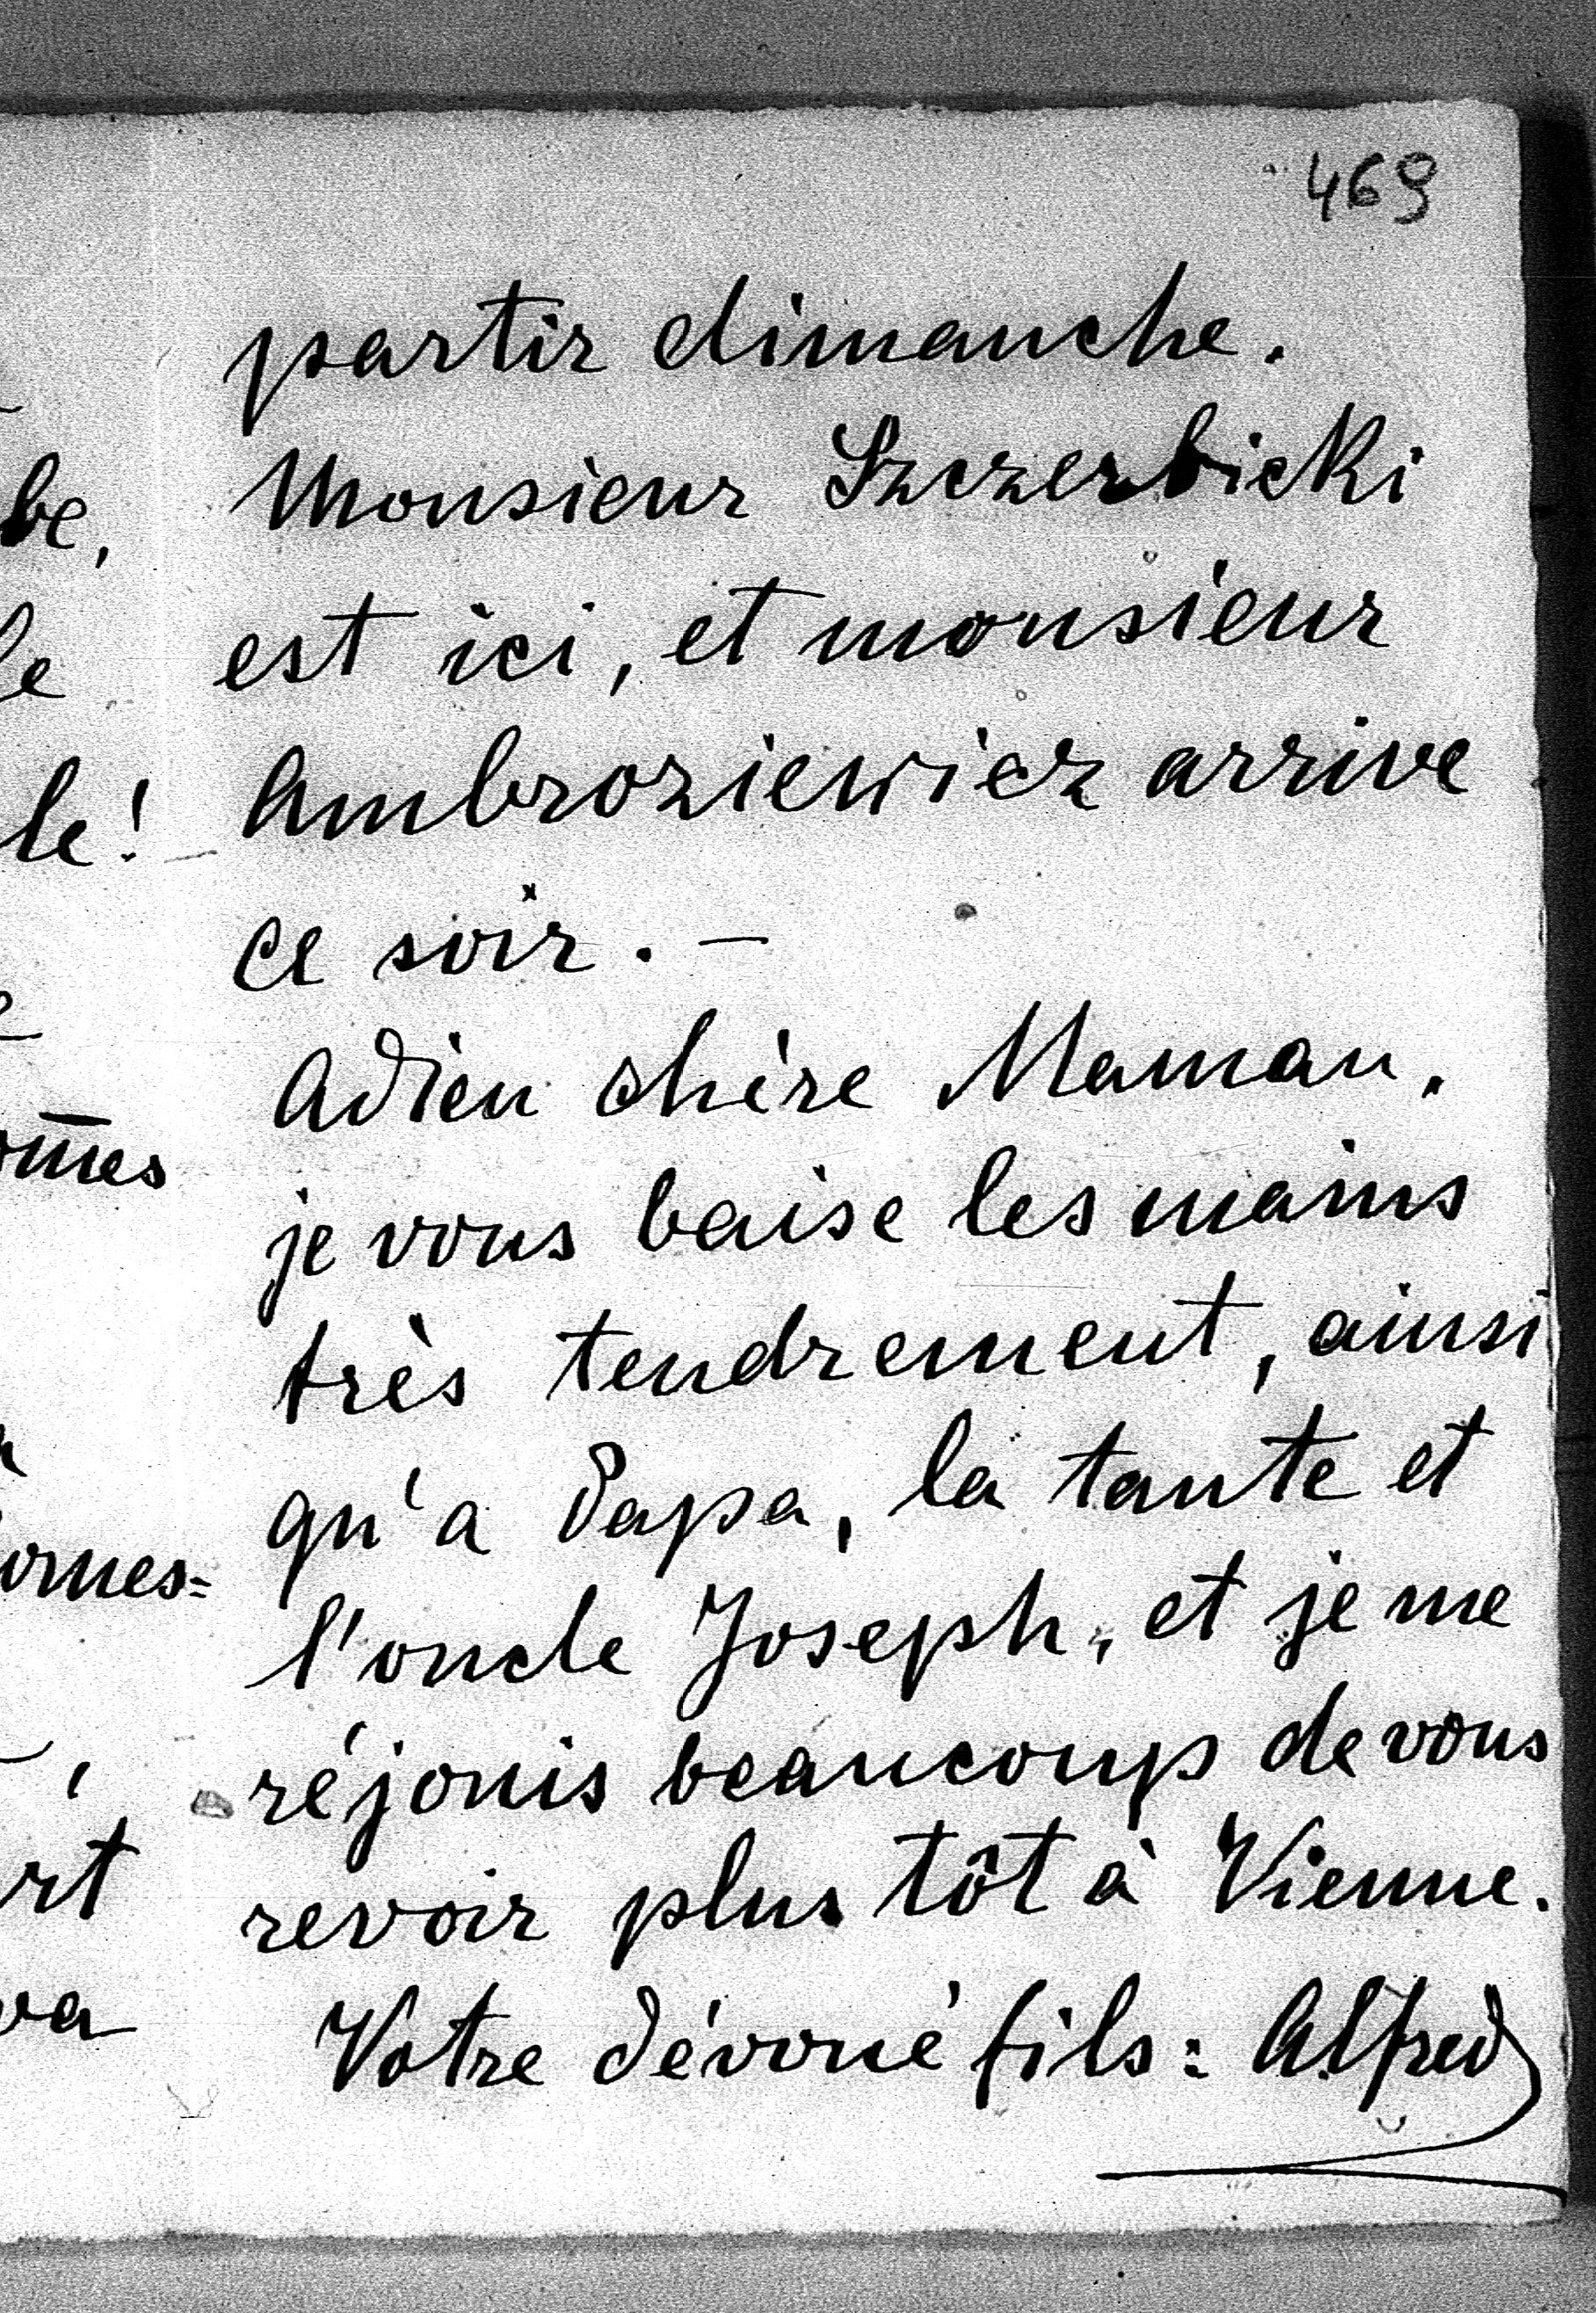 469
partir dimanche.
Monsieur Szczerbicki
est ici, et monsieur
Ambroziewicz arrive
ce soir. —
Adieu chère Maman.
je vous baise les mains
très tendrement, ainsi
qu'à Papa, la tante et
l'oncle Joseph, et je me
réjouis beaucoup de vous
revoir plus tôt à Vienne.
Votre dévoué fils: Alfred